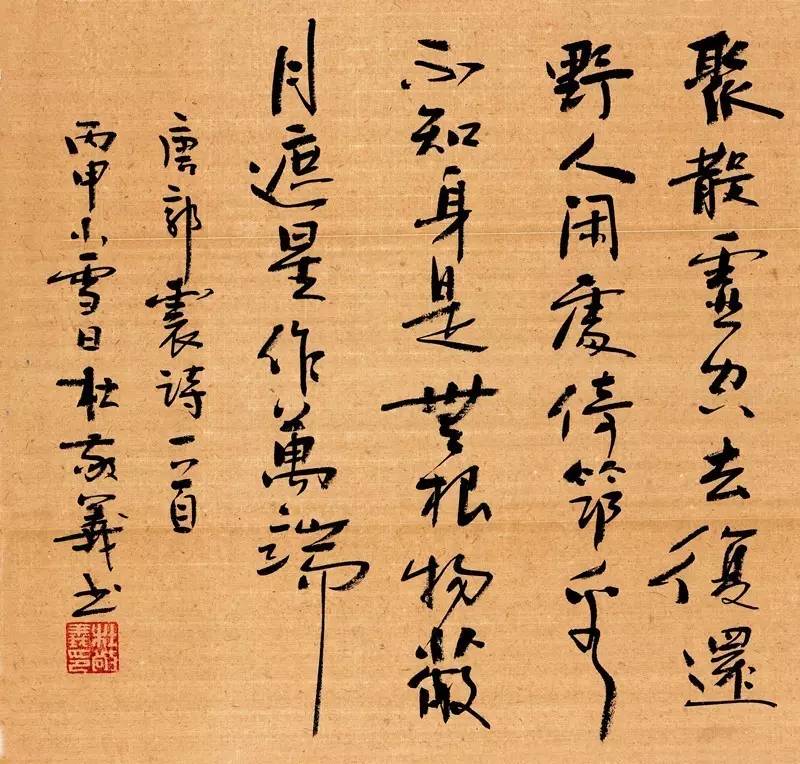 聚散虛空去復還
野人闲處倚筇看
不知身是無根物蔽
月遮星作萬端
唐郭震詩一首
丙申小雪日杜敬義书
杜敬義印